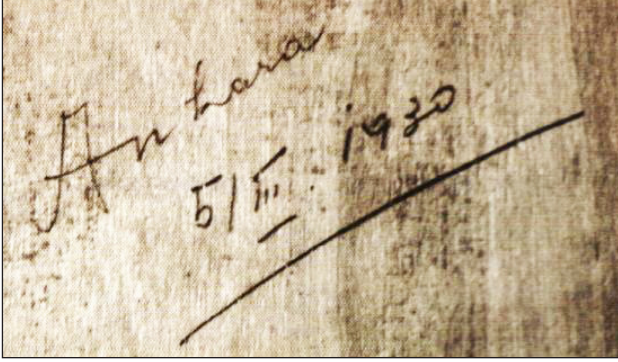 Ankara
5/III. 1930